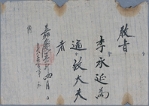 教旨
李永延爲
通政大夫
者
嘉慶　年四月　日